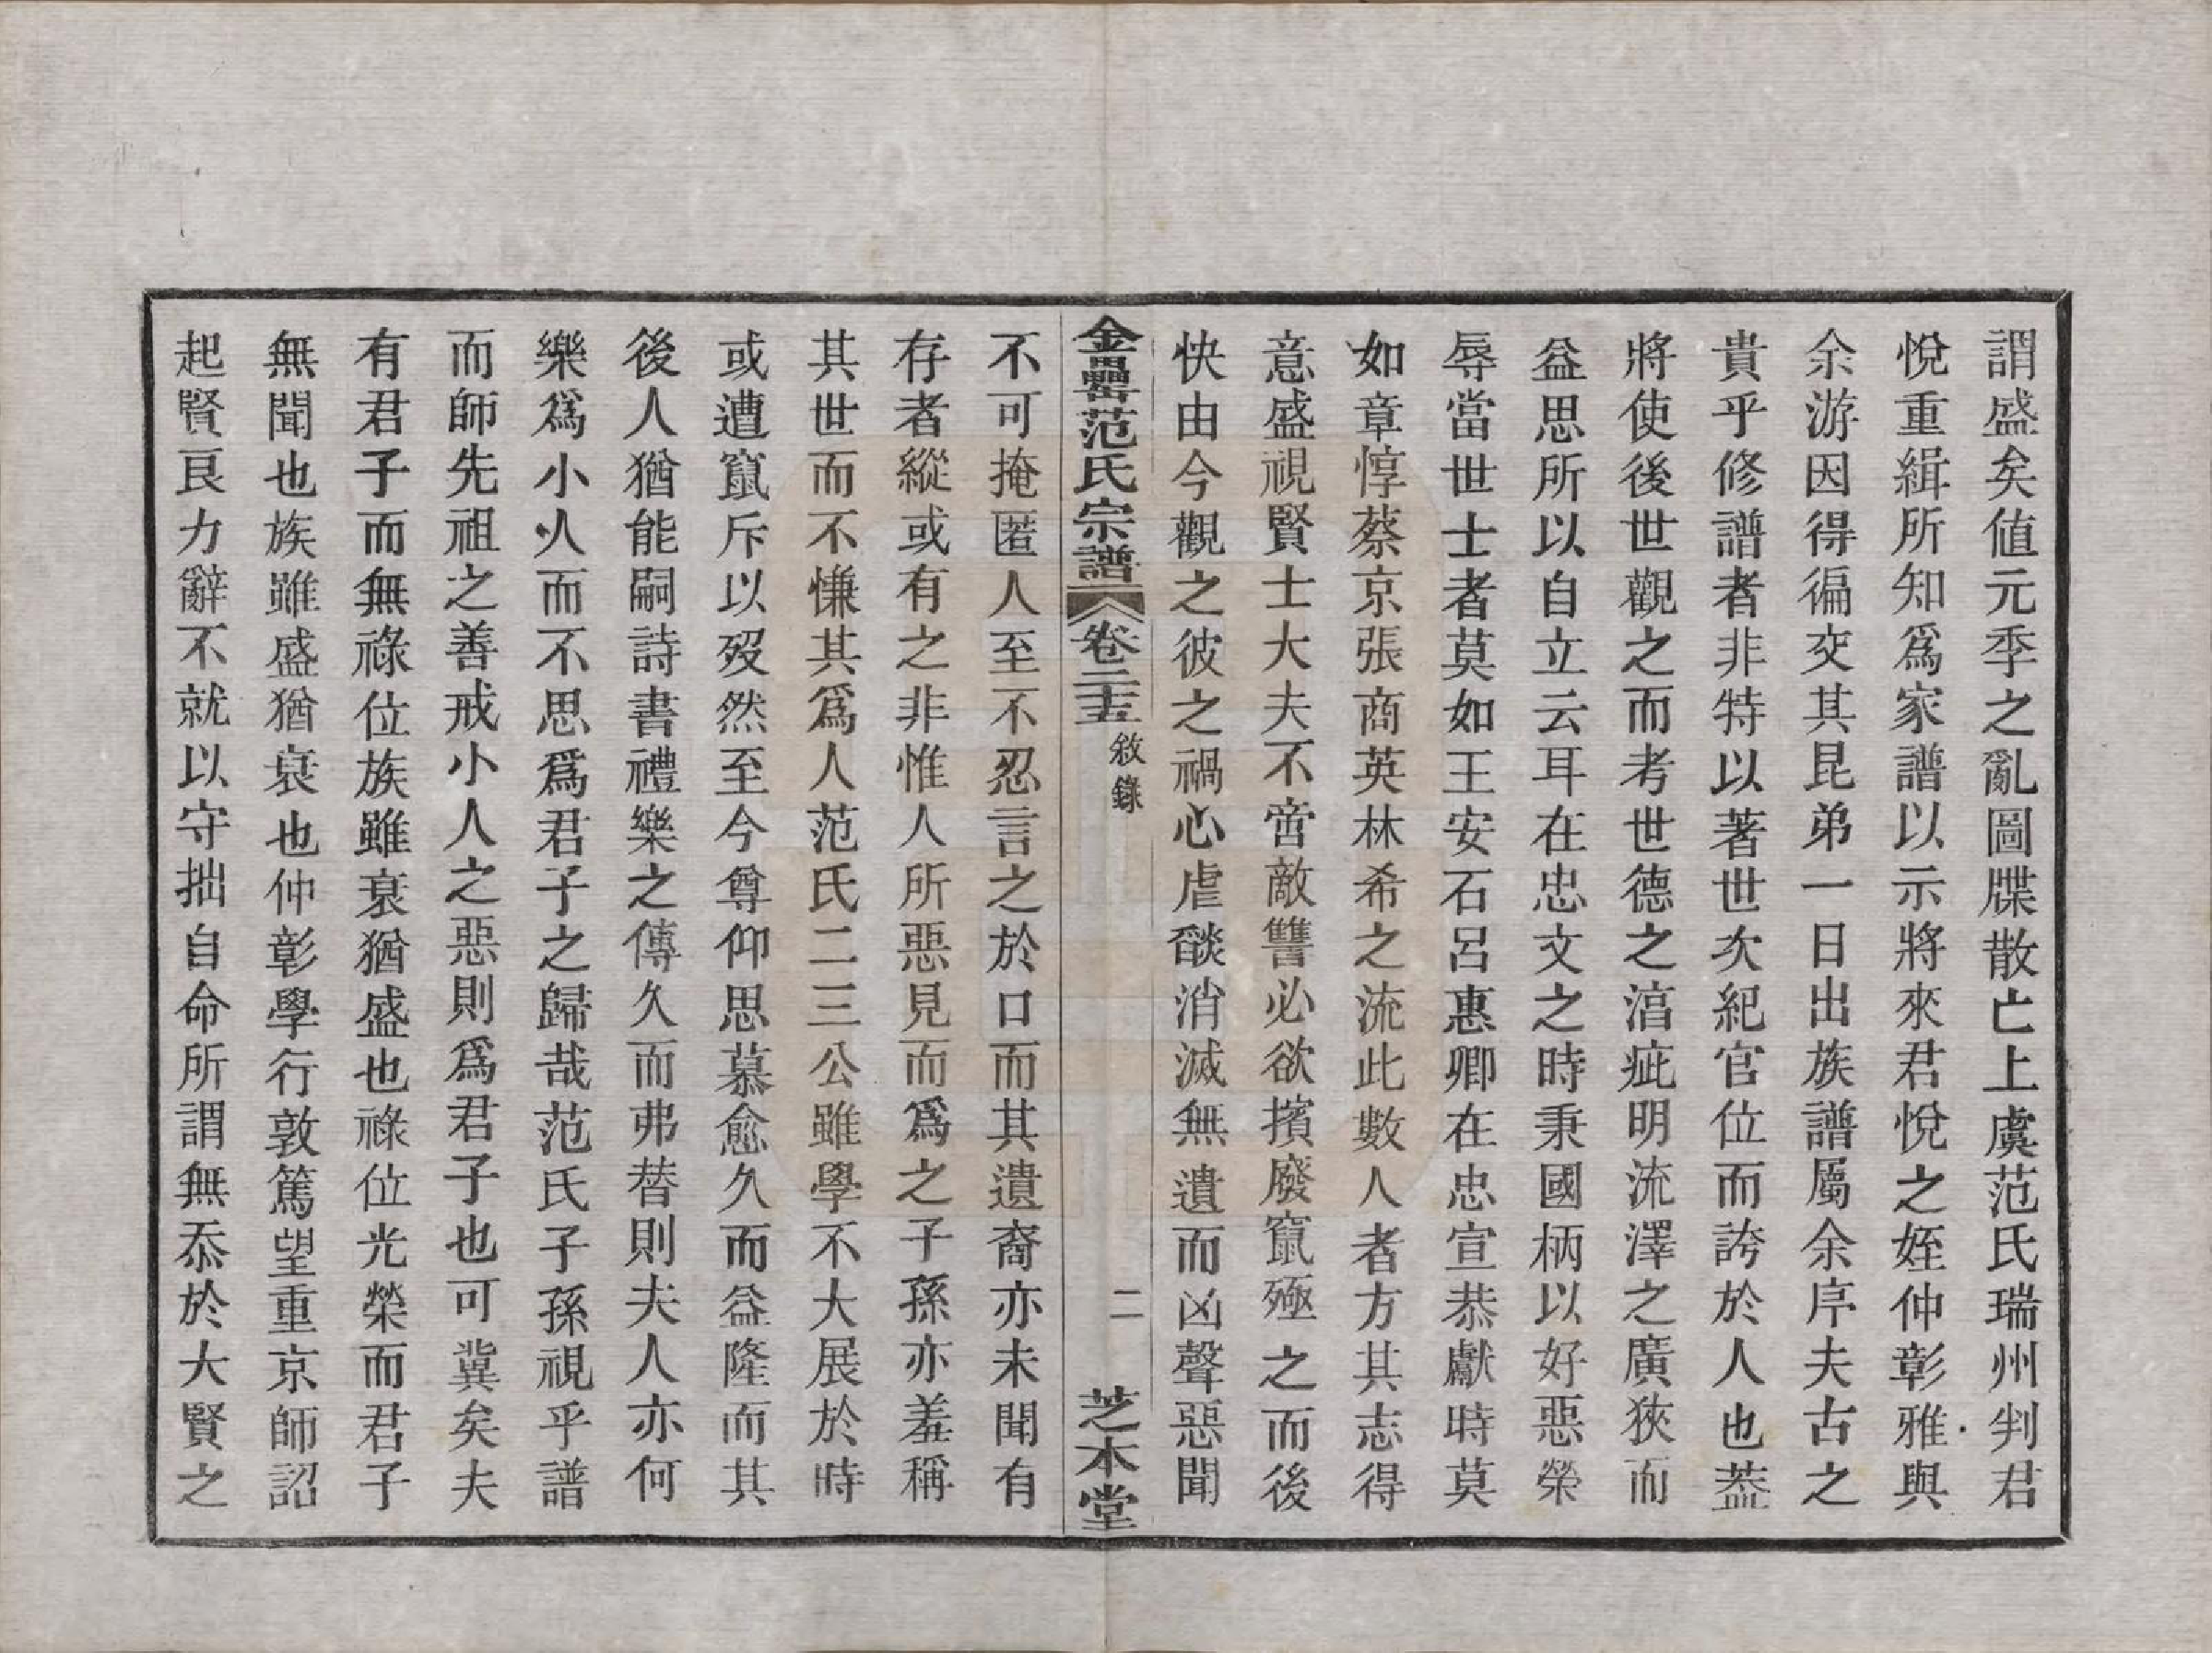 謂盛矣値元季之亂圖牒散亡上虞范氏瑞州判君
悅重緝所知爲家譜以示將來君悅之姪仲彰雅與
余游因得徧交其昆弟一日出族譜屬余序夫古之
貴乎修譜者非特以著世次紀官位而誇於人也葢
將使後世觀之而考世德之㳷疵明流澤之廣狹而
益思所以自立云耳在忠文之時秉國柄以好惡榮
辱當世士者莫如王安石呂惠卿在忠宣恭獻時莫
如章惇蔡京張商英林希之流此數人者方其志得
意盛視賢士大夫不啻敵讐必欲擯廢竄殛之而後
快由今觀之彼之禍心虐燄消滅無遺而凶聲惡聞
金罍范氏宗譜 卷二十五 敘錄 二 芝木堂
不可掩匿人至不忍言之於口而其遺裔亦未聞有
存者縱或有之非惟人所惡見而爲之子孫亦羞稱
其世而不慊其爲人范氏二三公雖學不大展於時
或遭竄斥以歿然至今尊仰思慕愈久而益隆而其
後人猶能嗣詩書禮樂之傳久而弗替則夫人亦何
樂爲小人而不思爲君子之歸哉范氏子孫視乎譜
而師先祖之善戒小人之惡則爲君子也可冀矣夫
有君子而無祿位族雖衰猶盛也祿位光榮而君子
無聞也族雖盛猶衰也仲彰學行敦篤望重京師詔
起賢良力辭不就以守拙自命所謂無忝於大賢之